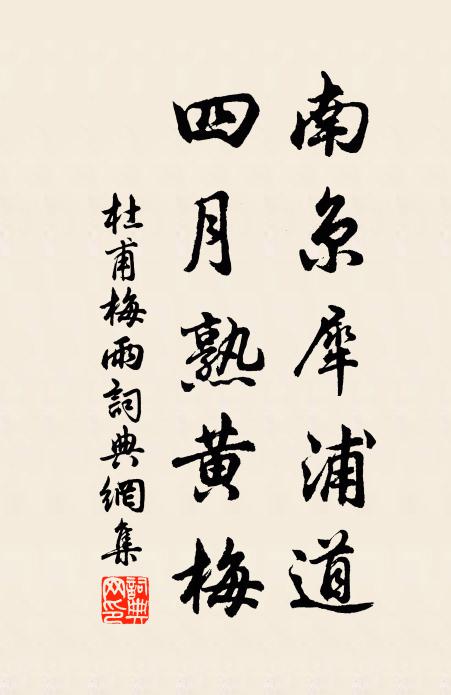 南京犀浦道
四月熟黄梅
杜甫梅雨詞典網集
詞典网印